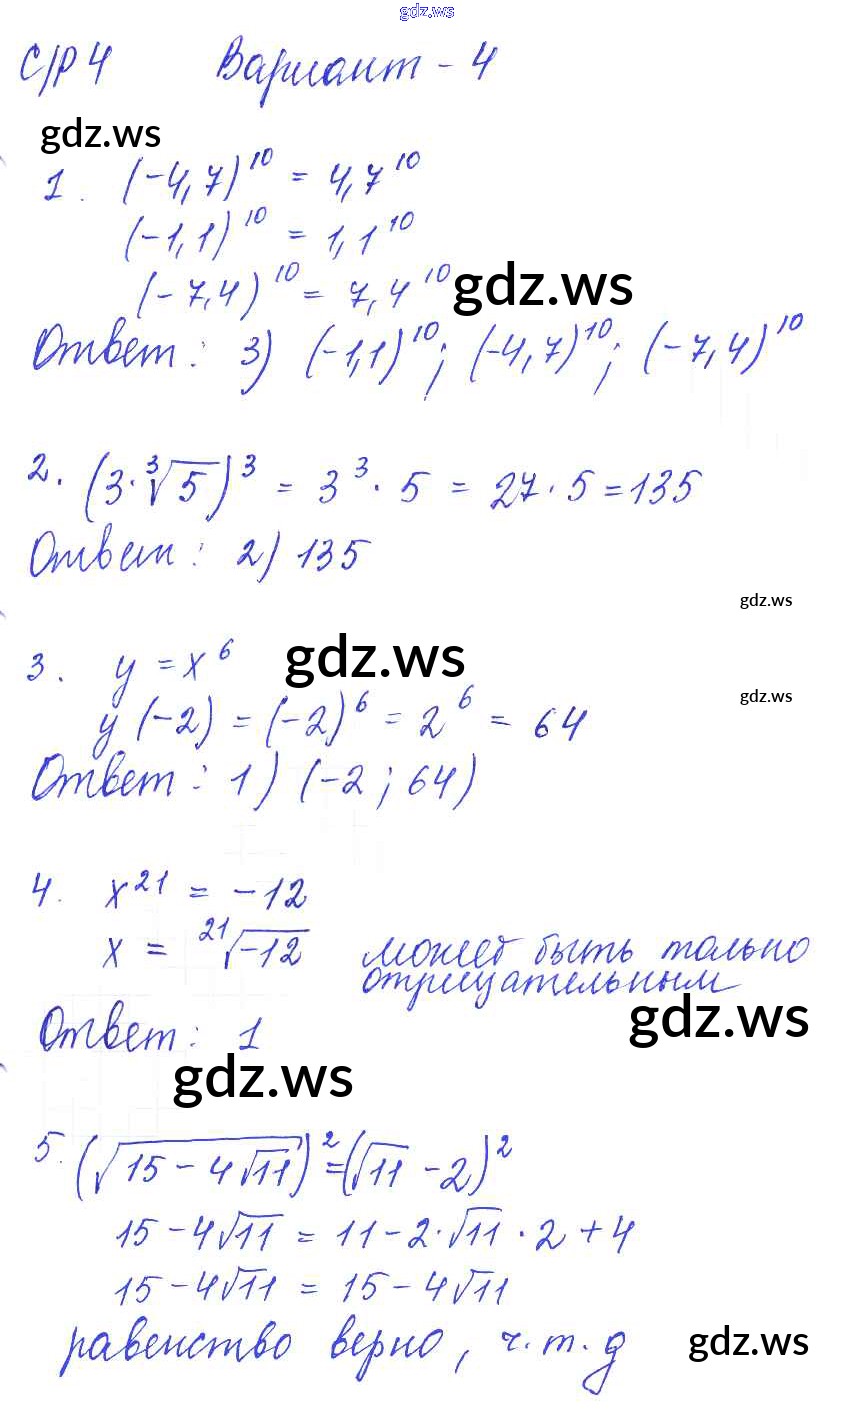 gdz.ws
С/Р 4 Вариант - 4
gdz.ws
1. (-4,7)^10 = 4,7^10
(-1,1)^10 = 1,1^10
(-7,4)^10 = 7,4^10 gdz.ws
Ответ: 3) (-1,1)^10; (-4,7)^10; (-7,4)^10
2. (3·∛5)^3 = 3^3 · 5 = 27 · 5 = 135
Ответ: 2) 135
gdz.ws
3. y = x^6 gdz.ws
gdz.ws
y (-2) = (-2)^6 = 2^6 = 64
Ответ: 1) (-2; 64)
4. x^21 = -12
x = ²¹√-12 может быть только
отрицательным
gdz.ws
Ответ: 1
gdz.ws
5. (√(15 - 4√11))^2 = (√11 - 2)^2
15 - 4√11 = 11 - 2·√11 · 2 + 4
15 - 4√11 = 15 - 4√11
равенство верно, ч.т.д gdz.ws